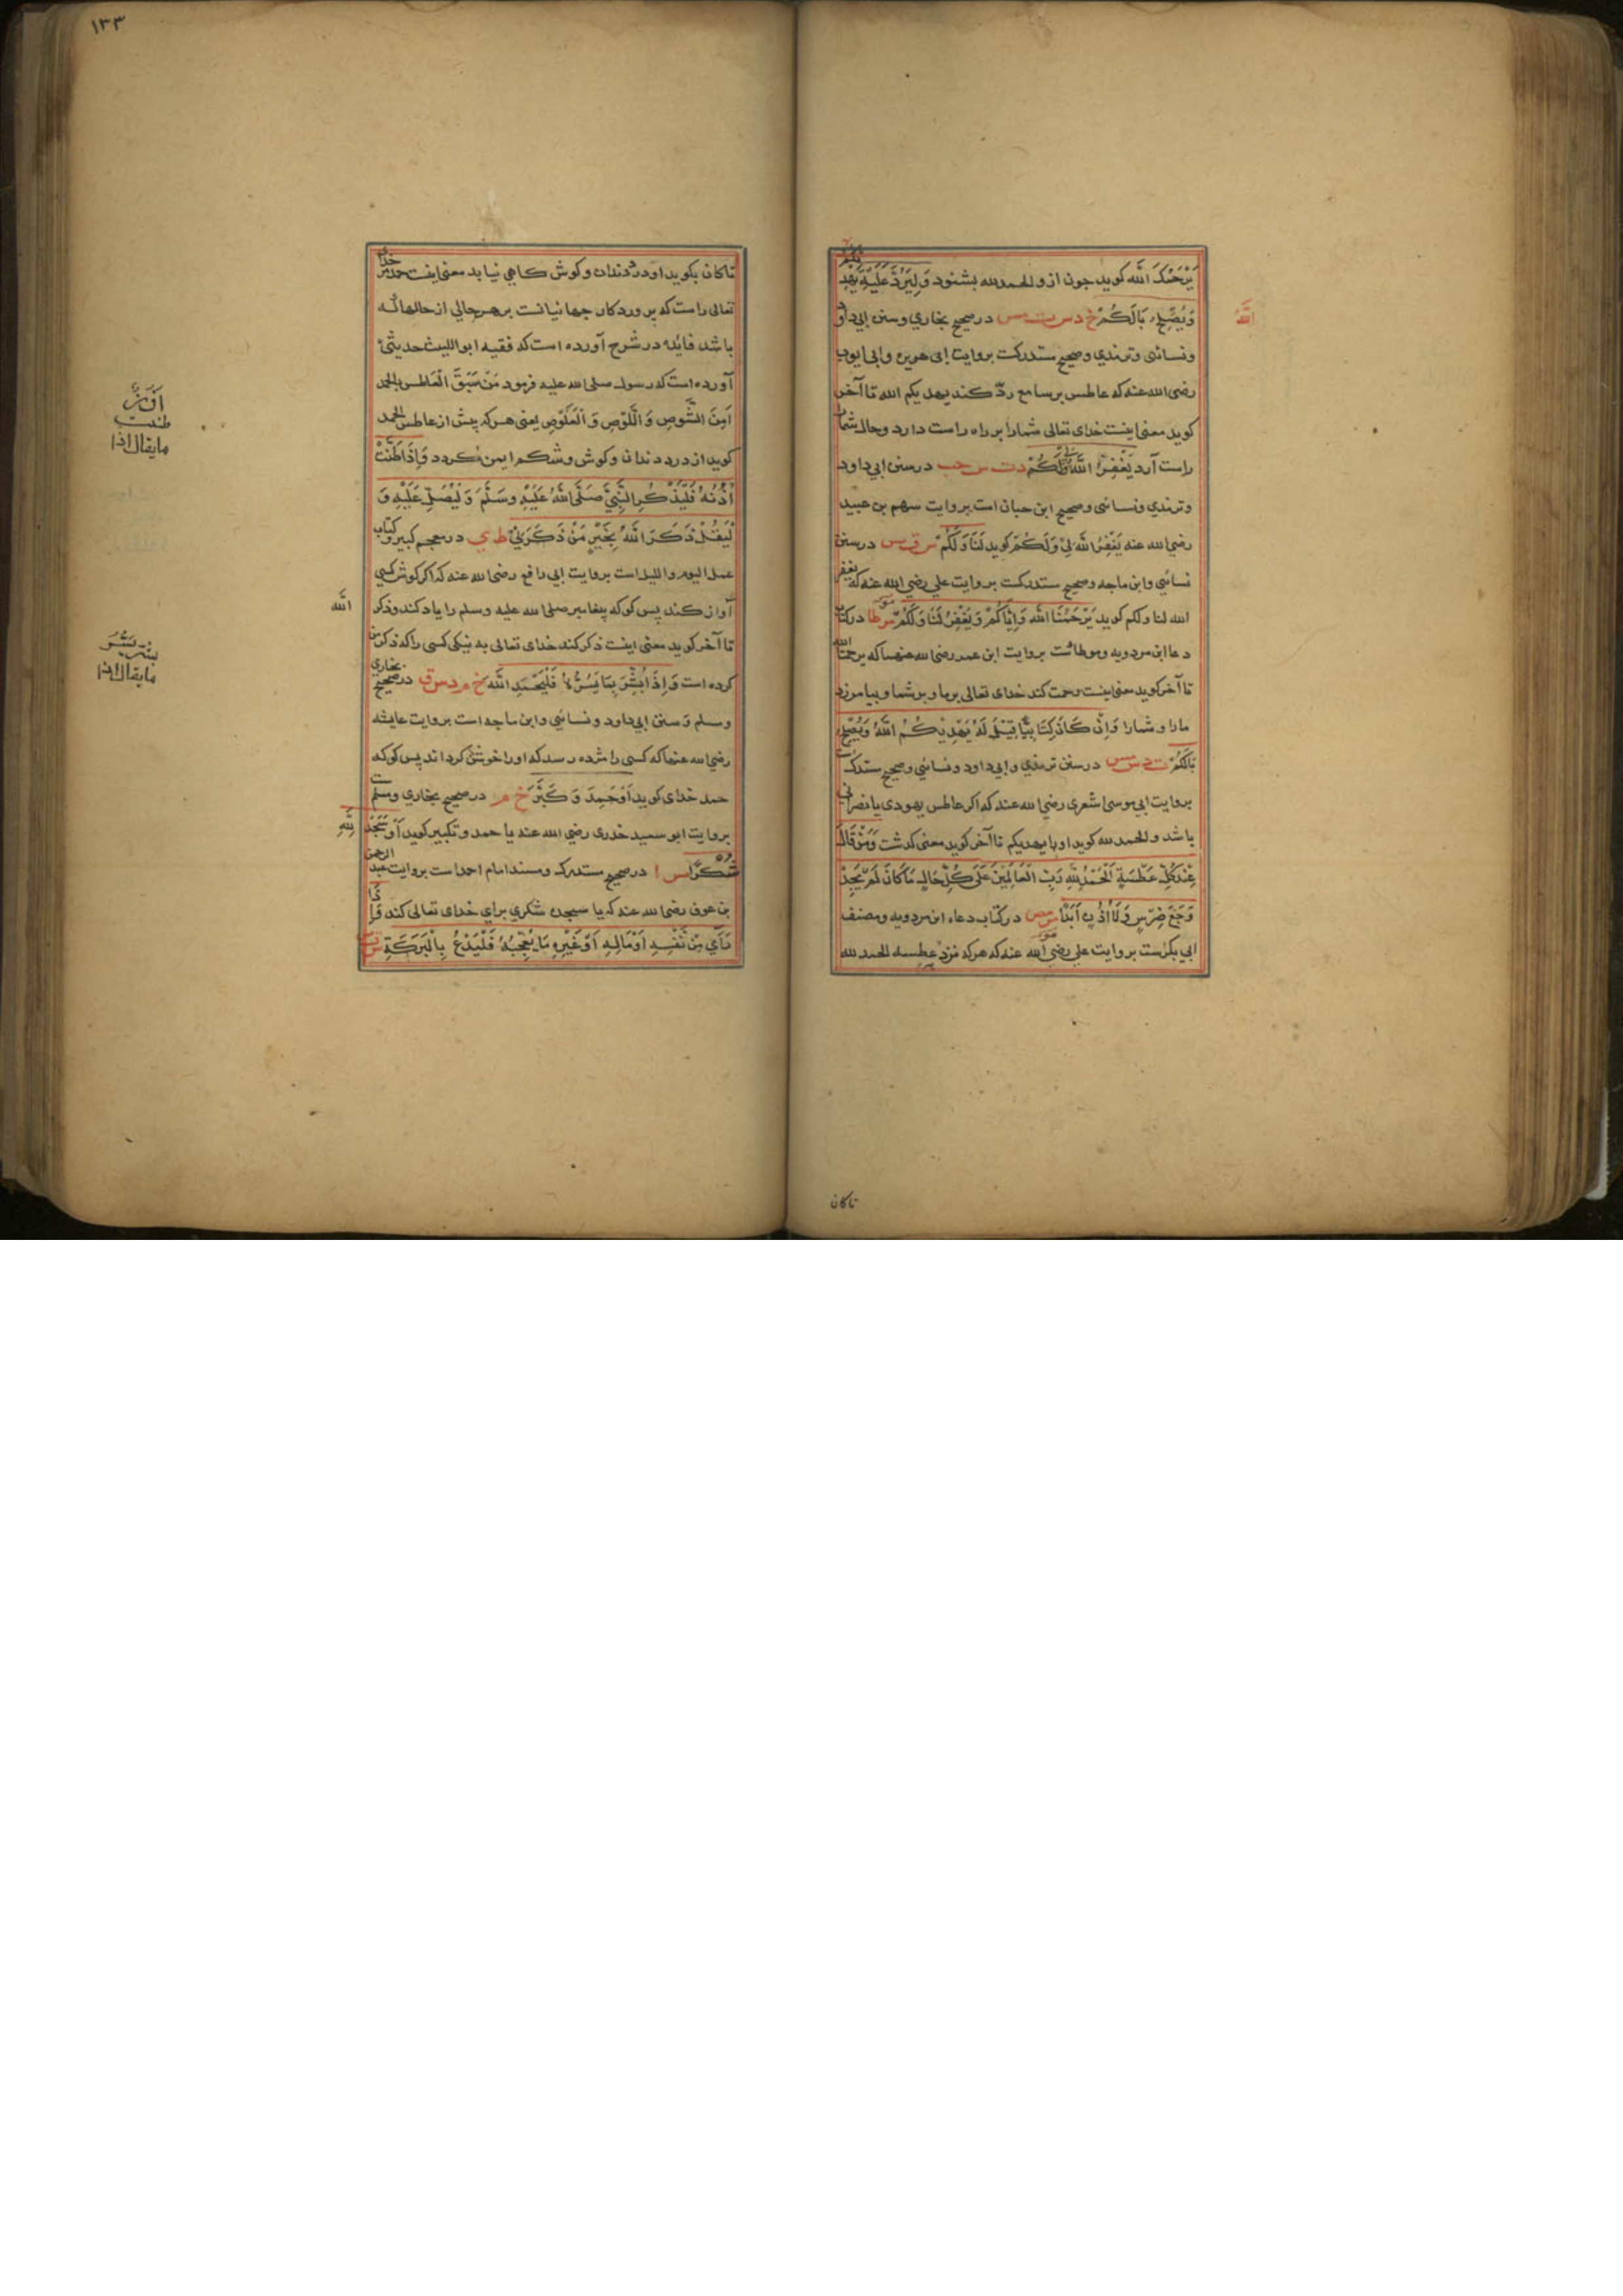 يَرْحَمُكَ اللَّه كويد جون ازو الحمد لله بشنود وَلْيَرُدَّ عَلَيْهِ يَهْدِيكُمُ
اللَّهُ
وَيُصْلِحُ بَالَكُمْ خ د س ت مس در صحيح بخاري وسنن ابي داود
ونسائى وترمذي وصحيح مستدركست بروايت ابى هريره وابى ايوب
رضى الله عنه كه عاطس بر سامع ردّ كند يهديكم الله تا آخر
كويد معنى اينست خداى تعالى شمارا بر راه راست دارد وحال شما
راست آرد يَغْفِرُ اللَّهُ لِي وَلَكُمْ د ت س حب در سنن ابي داود
وترمذي ونسائى وصحيح ابن حبان است بروايت سهم بن عبيد
رضى الله عنه يَغْفِرُ اللَّهُ لِي وَلَكُمْ كويد لَنَا وَلَكُمْ س ق مس در سنن
نسائي وابن ماجه وصحيح مستدركست بروايت علي رضي الله عنه كه يغفر
الله لنا ولكم كويد يَرْحَمُنَا اللَّه وَإِيَّاكُمْ وَيَغْفِرُ لَنَا وَلَكُمْ مو مر طا در كتاب
دعا ابن مردويه وموطائست بروايت ابن عمر رضى الله عنهما كه يرحمنا الله
تا آخر كويد معنى اينست رحمت كند خداى تعالى بر ما وبر شما وبيامرزد
مارا وشمارا وَإِنْ كَانَ كِتَابِيًّا قِيْلَ لَهُ يَهْدِيْكُمُ اللَّهُ وَيُصْلِحُ
بَالَكُمْ ت د س مس در سنن ترمذي وابي داود ونسائي وصحيح مستدركست
بروايت ابي موسى اشعري رضى الله عنه كه اكر عاطس يهودى يا نصرانى
باشد والحمد لله كويد او با يهديكم تا آخر كويد معنى كدشت وَمَنْ قَالَ
عِنْدَ كُلِّ عَطْسَةٍ اَلْحَمْدُ لِلَّهِ رَبِّ الْعَالَمِيْنَ عَلَى كُلِّ حَالٍ مَا كَانَ لَمْ يَجِدْ
وَجَعَ ضِرْسٍ وَلَا أُذُنٍ أَبَدًا مو مص در كتاب دعاء ابن مردويه ومصنف
ابي بكرست بروايت علي رضي الله عنه كه هركه نزد عطسه الحمد لله
تاكان
١٣٣
تاكان بكويد او درد دندان وكوش كاهي نيابد معنى اينست حمد مر خداى
تعالى راست كه پروردكار جهانيانست بر هر حالي از حالها كه
باشد فائده در شرح آورده است كه فقيه ابو الليث حديثى
آورده است كه رسول صلى الله عليه فرمود مَنْ سَبَقَ الْعَاطِسَ بالحمد
اَمِنَ الشَّوصِ وَاللَّوْصِ وَالْعَلَّوْصِ يعنى هركه پيش از عاطس الحمد
كويد از درد دندان وكوش وشكم ايمن كردد وَإِذَا طَنَّتْ
أُذُنُهُ فَلْيَذْكُرِ النَّبِيَّ صَلَّى اللَّهُ عَلَيْهِ وسَلَّمَ وَلْيُصَلِّ عَلَيْهِ وَ
لْيَقُلْ ذَكَرَ اللَّهُ بِخَيْرٍ مَنْ ذَكَرَنِيْ ط ي در معجم كبير وكتاب
عمل اليوم والليل است بروايت ابي رافع رضى الله عنه كه اكر كوش كسي
آواز كند پس كو كه پيغامبر صلى الله عليه وسلم را ياد كند وذكر
اللَّه
تا آخر كويد معنى اينست ذكر كند خداى تعالى به نيكى كسى را كه ذكر من
كرده است وَإِذَا بُشِّرَ بِمَا يَسُرُّهُ فَلْيَحْمَدِ اللَّهَ خ م د س ق در صحيح بخارى
ومسلم وسنن ابي داود ونسائي وابن ماجه است بروايت عايشه
رضى الله عنها كه كسى را مژده رسد كه او را خوش كرداند پس كو كه
حمد خداى كويد اَوْ حَمِدَ وَكَبَّرَ خ م در صحيح بخارى ومسلمست
بروايت ابو سعيد خدرى رضي الله عنه يا حمد وتكبير كويد أَوْ سَجَدَ لِلَّهِ
شُكْرًا مس ا در صحيح مستدرك ومسند امام احمد است بروايت عبد الرحمن
بن عوف رضى الله عنه كه يا سجده شكرى براي خداى تعالى كند وَإِذَا
رَأَى مِنْ نَفْسِهِ اَوْ مَالِهِ اَوْ غَيْرِهِ مَا يُعْجِبُهُ فَلْيَدْعُ بِالْبَرَكَةِ س ق
طنت
ما يقال اذا
بشر بما يسر
ما يقال اذا